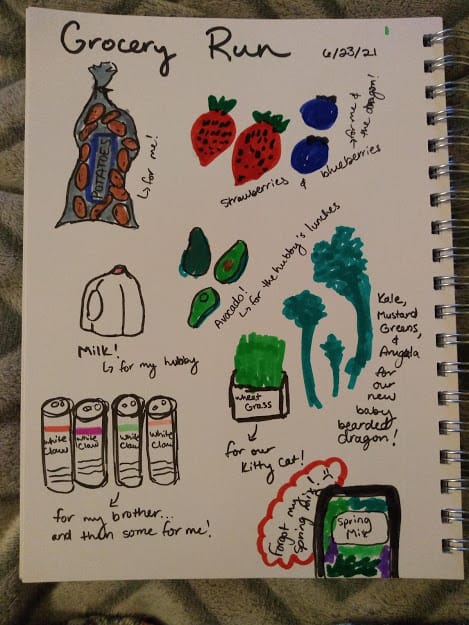 Grocery Run
6/23/21
POTATOES
↳ for me!
Strawberries & blueberries
↳ for me & the dragon!
Avocado!
↳ for the hubby's lunches
Milk!
↳ for my hubby
Wheat Grass
for our
Kitty Cat!
Kale,
Mustard
Greens,
&
Arugala
for
our
new
baby
bearded
dragon!
White Claw
White Claw
White Claw
White Claw
for my brother...
and then some for me!
Forgot my
Spring Mix! :)
Spring
Mix